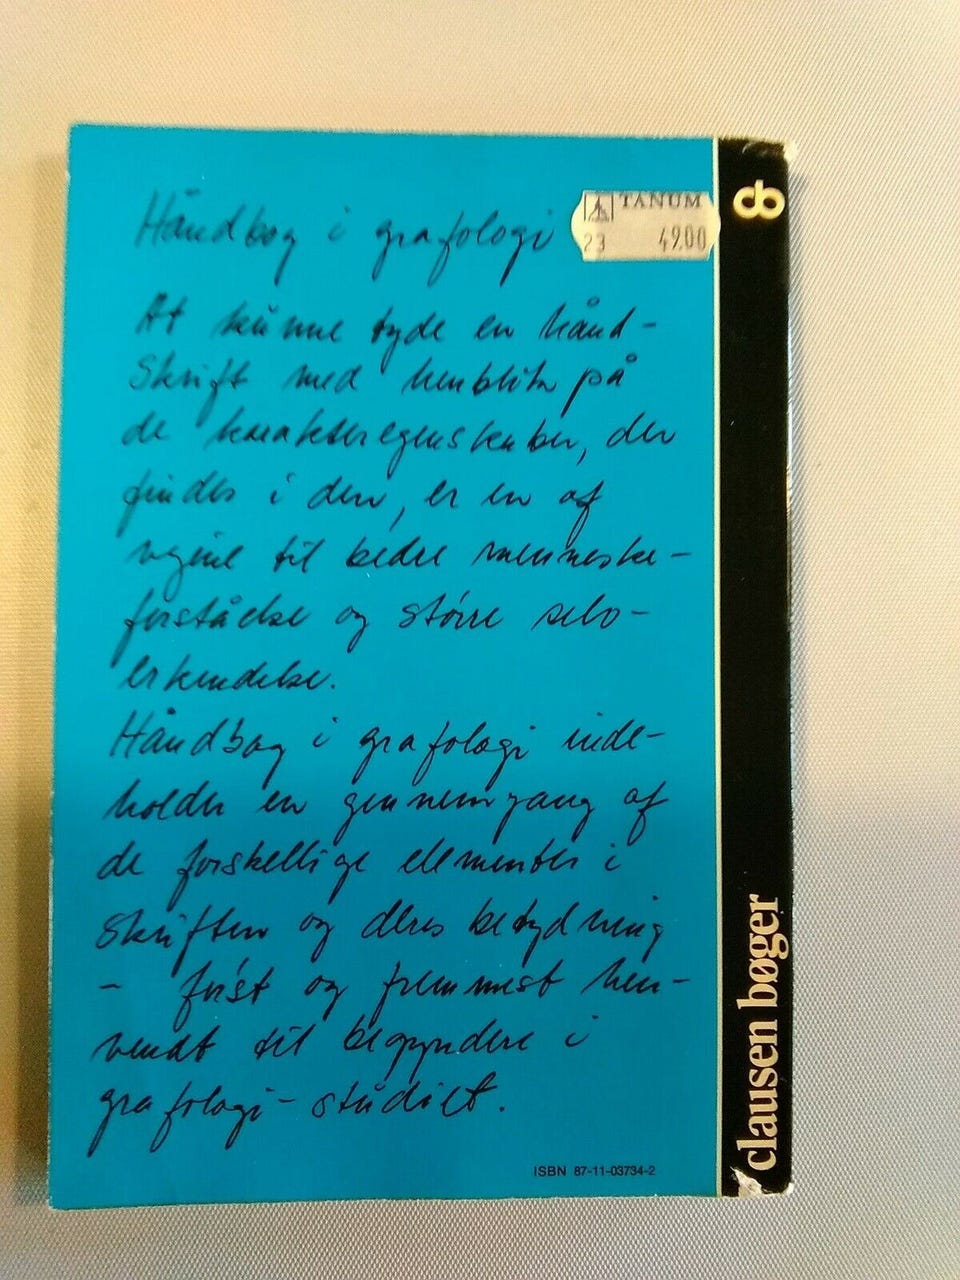 Håndbog i grafologi
TANUM
23 4900
At kunne tyde en hånd-
skrift med henblik på
de karakteregenskaber, der
findes i den, er en af
vejene til bedre menneske-
forståelse og større selv-
erkendelse.
Håndbog i grafologi inde-
holder en gennemgang af
de forskellige elementer i
skriften og deres betydning
- først og fremmest hen-
vendt til begyndere i
grafologi-studiet.
ISBN 87-11-03734-2
clausen bøger